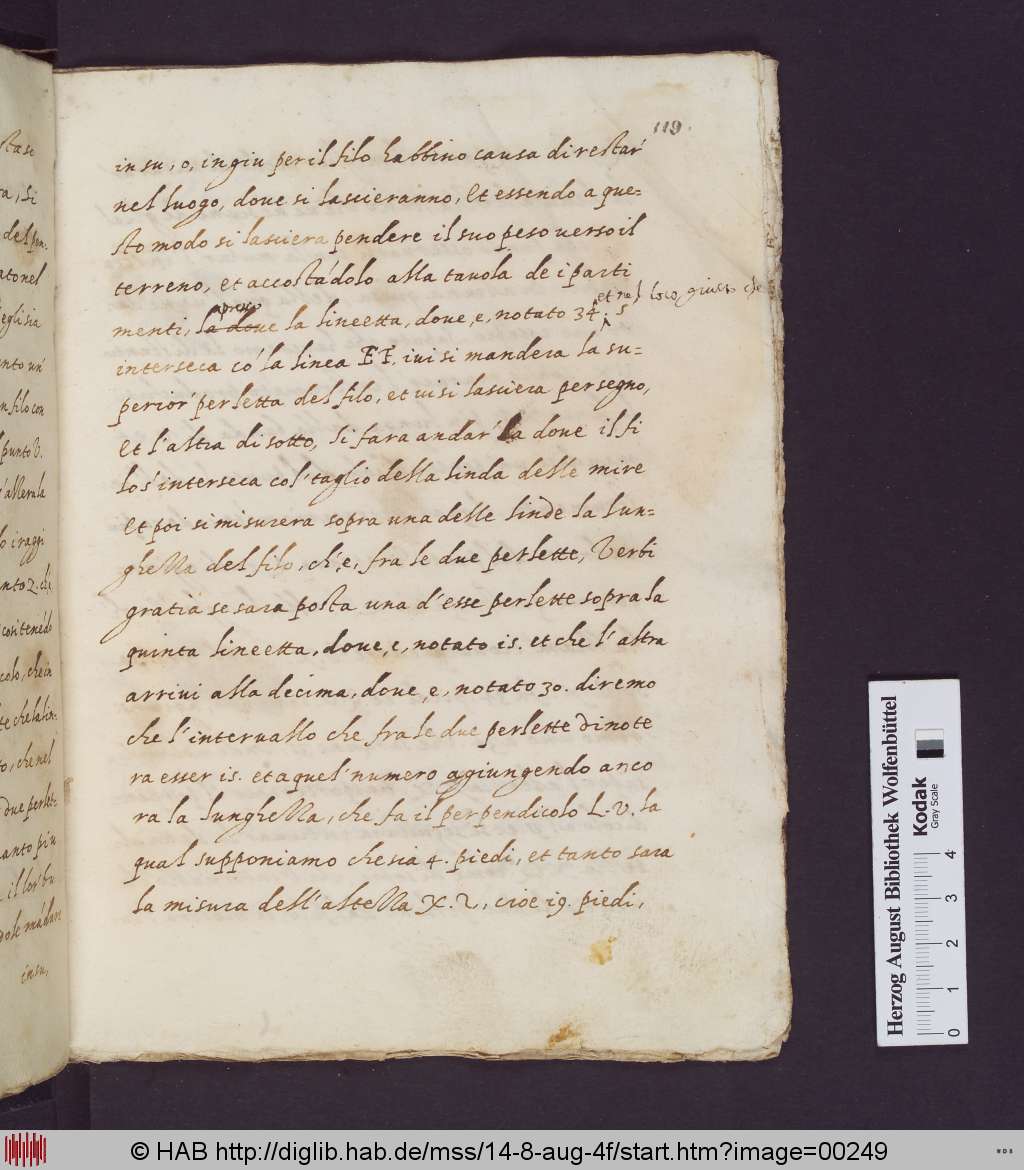 119.
in su, o, in giu per il filo habbino causa di restar'
nel luogo, dove si lascieranno, Et essendo a que=
sto modo si lasciera pendere il suo peso verso il
terreno, et accostādolo alla tavola de i parti
et nel loco, giusto che
apreso
menti, la dove la lineetta, dove, e, notato 34.
interseca cō la linea EF. ivi si mandera la su=
perior' perletta del filo, et vi si lasciera per segno,
Et l'altra di sotto, si fara andar' la dove il fi
lo s'interseca col' taglio della linda delle mire
Et poi si misurera sopra una delle linde la lun=
ghella del filo, ch'e, fra le due perlette, Verbi
gratia se sara posta una d'esse perlette sopra la
quinta lineetta, dove, e, notato is. et che l'altra
arrivi alla decima, dove, e, notato 30. diremo
che l'intervallo che fra le due perlette dinote
ra esser is. et a quel' numero agiungendo anco
ra la lunghella, che fa il perpendicolo L.V. la
qual supponiamo che sia 4. piedi, et tanto sara
la misura dell'altella X.Z, cioe i9. piedi,
ra, si
del pun-
ato nel
egli sia
n filo con
punto V.
o i raggi
cosi tenēdo
colo, che in
te che la lin-
to, che nel
due perlet-
anto piu
il lor' bu
in su,
Herzog August Bibliothek Wolfenbüttel
Kodak
Gray Scale
0 1 2 3 4
© HAB http://diglib.hab.de/mss/14-8-aug-4f/start.htm?image=00249